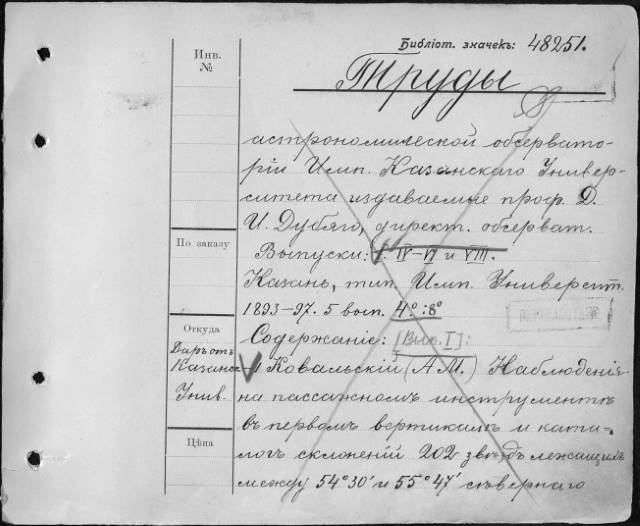 Библіот. значекъ: 48251.
Инв. №
Труды
астрономической обсервато-
ріи Имп. Казанскаго Универ-
ситета издаваемые проф. Д.
И. Дубяго, директ. обсерват.
По заказу
Выпуски: I. IV–VI и VIII.
Казань, тип. Имп. Университ.
1893–97. 5 вып. 4° : 8°
Откуда
Содержаніе: [Вып. I]:
Даръ отъ
Казанск.
Унив.
1 Ковальскій (А.М.) Наблюденія
на пассажномъ инструментѣ
въ первомъ вертикалѣ и ката-
Цѣна
логъ склоненій 202 звѣздъ лежащихъ
между 54°30′ и 55°47′ сѣвернаго